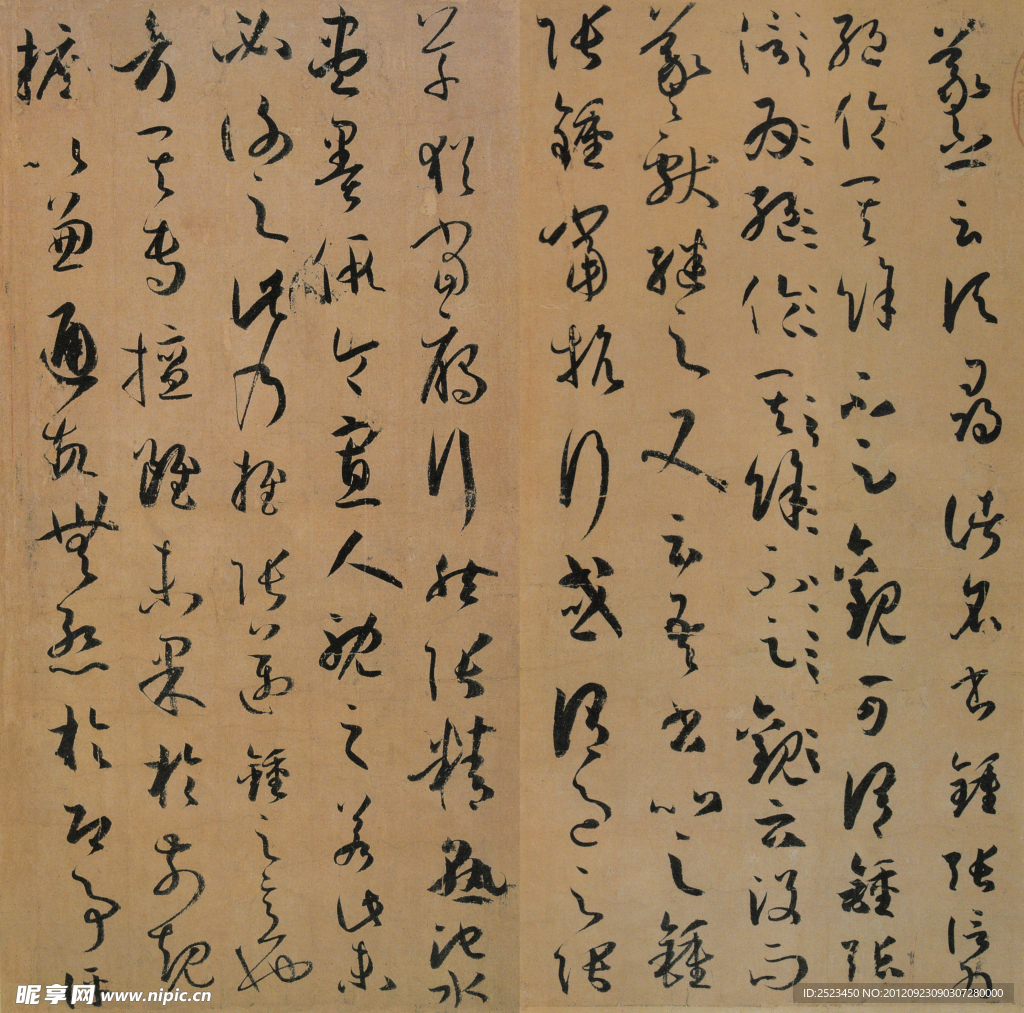 羲之云頃尋諸名書鍾張信為
絕倫其餘不足觀可謂鍾張
信為絕倫其餘不足觀云沒而
羲獻繼之又云吾書比之鍾
張鍾當抗行或謂過之張
草猶當鴈行然張精熟池水
盡墨假令寡人耽之若此未
必謝之此乃推張邁鍾之意也
考其專擅雖未果於前規
摭以兼通故無慚於即事評
昵享网 www.nipic.cn
ID:2523450 NO:20120923090307280000